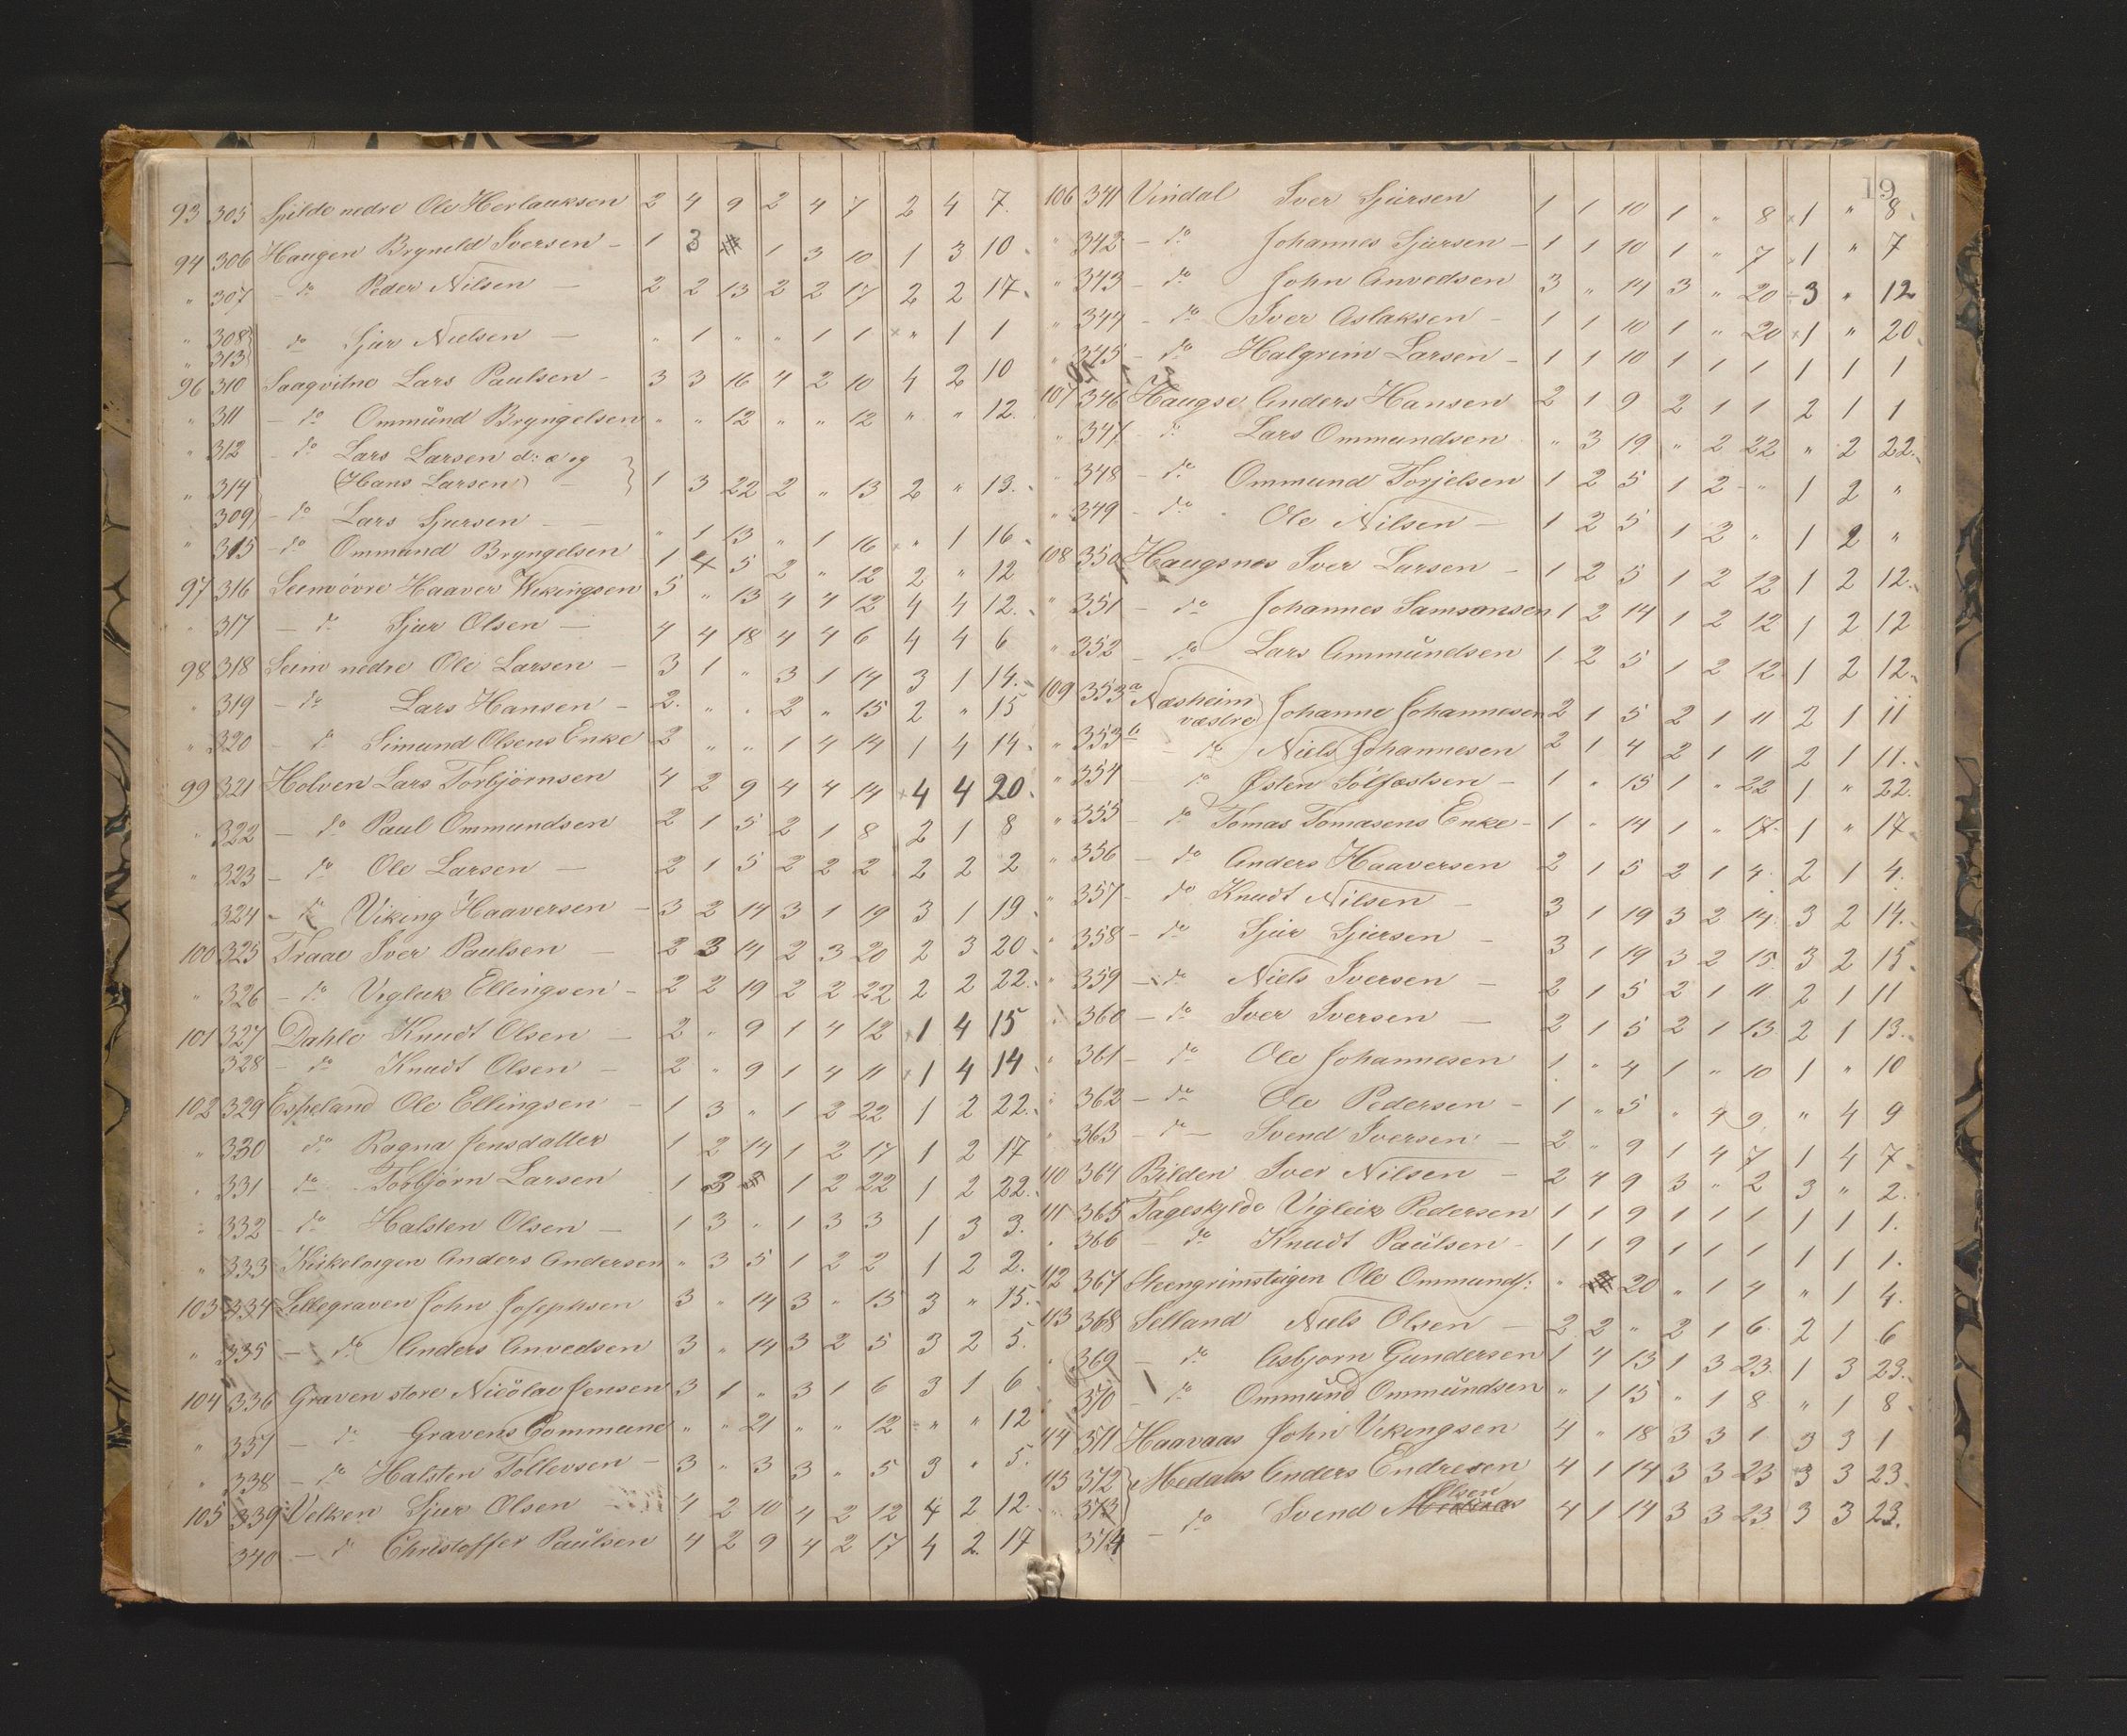 93 305 Spilde nedre Ole Herlauksen 2 4 9 2 4 7 2 4 7.
94 306 Haugen Bryneld Iversen - 1 3 1 3 10 1 3 10
" 307 - do Peder Nilsen - 2 2 13 2 2 17 2 2 17.
" 308 - do Sjur Nielsen - " 1 " " 1 1 × " 1 1
" 313
96 310 Saaqvitne Lars Paulsen - 3 3 16 4 2 10 4 2 10
" 311 - do Ommund Bryngelsen " " 12 " " 12 " " 12.
" 312 - do Lars Larsen d: æ og
" 314 (Hans Larsen) - 1 3 22 2 " 13 2 " 13.
309 - do Lars Sjursen - " 1 13 " 1 16 × " 1 16
" 315 - do Ommund Bryngelsen 1 4 5 2 " 12 2 " 12
97 316 Seim övre Haaver Wikingsen 5 " 13 4 4 12 4 4 12.
" 317 - do Sjur Olsen - 4 4 18 4 4 6 4 4 6
98 318 Seim nedre Ole Larsen - 3 1 " 3 1 14 3 1 14.
" 319 - do Lars Hansen - 2. " " 2 " 15 2 " 15
" 320 - do Simund Olsens Enke 2 " " 1 4 14 1 4 14.
99 321 Holven Lars Torbjörnsen 4 2 9 4 4 14 × 4 4 20.
" 322 - do Paul Ommundsen 2 1 5 2 1 8 2 1 8
" 323 - do Ole Larsen - 2 1 5 2 2 2 2 2 2
324 - do Viking Haaversen - 3 2 14 3 1 19 3 1 19
100 325 Traae Iver Paulsen - 2 3 14 2 3 20 2 3 20
" 326 - do Vigleik Ellingsen - 2 2 19 2 2 22 2 2 22.
101 327 Dahle Knudt Olsen - 2 " 9 1 4 12 × 1 4 15
328 - do Knudt Olsen - 2 " 9 1 4 11 × 1 4 14
102 329 Espeland Ole Ellingsen - 1 3 " 1 2 22 1 2 22.
" 330 do Ragna Jensdatter 1 2 14 1 2 17 1 2 17
" 331 do Torbjörn Larsen 1 3 1 2 22 1 2 22.
" 332 - do Halsten Olsen - 1 3 " 1 3 3 1 3 3.
" 333 Kirketeigen Anders Andersen " 3 5 1 2 2 1 2 2.
103 334 Lillegraven John Josephsen 3 " 14 3 " 15 3 " 15.
" 335 - do Anders Anvedsen 3 " 14 3 2 5 3 2 5.
104 336 Graven store Nicolai Jensen 3 1 " 3 1 6 3 1 6
" 337 - do Gravens Commune " " 21 " " 12 " " 12
" 338 - do Halsten Tollevsen - 3 " 3 3 " 5 3 " 5.
105 339 Velken Sjur Olsen - 4 2 10 4 2 12 4 2 12.
340 - do Christoffer Paulsen 4 2 9 4 2 17 4 2 17
19
106 341 Vindal Iver Sjursen 1 1 10 1 " 8 × 1 " 8.
" 342 - do Johannes Sjursen - 1 1 10 1 " 7 × 1 " 7
" 343 - do John Anvedsen 3 " 14 3 " 20 ÷ 3 " 12
" 344 - do Iver Aslaksen - 1 1 10 1 " 20 × 1 " 20
345 - do Halgrim Larsen - 1 1 10 1 1 1 1 1 1
107 346 Haugse Anders Hansen 2 1 9 2 1 1 2 1 1
" 347 do Lars Ommundsen " 3 19 " 2 22 " 2 22.
" 348 - do Ommund Torjelsen 1 2 5 1 2 " 1 2 "
" 349 - do Ole Nilsen - 1 2 5 1 2 " 1 2 "
108 350 Haugsnes Iver Larsen - 1 2 5 1 2 12 1 2 12.
" 351 - do Johannes Samsonsen 1 2 14 1 2 12 1 2 12
" 352 - do Lars Ammundsen 1 2 5 1 2 12 1 2 12.
109 353a Næsheim væstre Johanne Johannesen 2 1 5 2 1 11 2 1 11
" 353b - do Niels Johannesen 2 1 4 2 1 11 2 1 11.
" 354 do Østen Sölfæstsen - 1 " 15 1 " 22 1 " 22.
" 355 - do Tomas Tomasens Enke - 1 " 14 1 " 17. 1 " 17
" 356 - do Anders Haaversen 2 1 5 2 1 4. 2 1 4.
" 357 - do Knudt Nilsen - 3 1 19 3 2 14. 3 2 14.
" 358 - do Sjur Sjursen - 3 1 19 3 2 15. 3 2 15.
" 359 - do Niels Iversen - 2 1 5 2 1 11 2 1 11
" 360 - do Iver Iversen - 2 1 5 2 1 13 2 1 13.
" 361 - do Ole Johannesen 1 " 4 1 " 10 1 " 10
" 362 - do Ole Pedersen - 1 " 5 " 4 9 " 4 9
" 363 - do - Svend Iversen - 2 " 9 1 4 7 1 4 7
110 364 Bilden Iver Nilsen - 2 4 9 3 " 2 3 " 2.
111 365 Fageskjeldo Vigleik Pedersen 1 1 9 1 1 1 1 1 1.
" 366 - do Knudt Paulsen - 1 1 9 1 1 1 1 1 1.
112 367 Steengrimsteigen Ole Ommunds: " 20 " 1 4 " 1 4.
113 368 Selland Niels Olsen - 2 2 " 2 1 6. 2 1 6
" 369 - do Asbjorn Gundersen 1 4 13 1 3 23. 1 3 23.
370 - do Ommund Ommundsen " 1 15 " 1 8 " 1 8
114 371 Haavaas John Vikingsen 4 " 18 3 3 1 3 3 1
115 372 Medaas Anders Endresen 4 1 14 3 3 23 3 3 23.
Olsen
" 373 - do Svend Medaas 4 1 14 3 3 23 3 3 23.
374